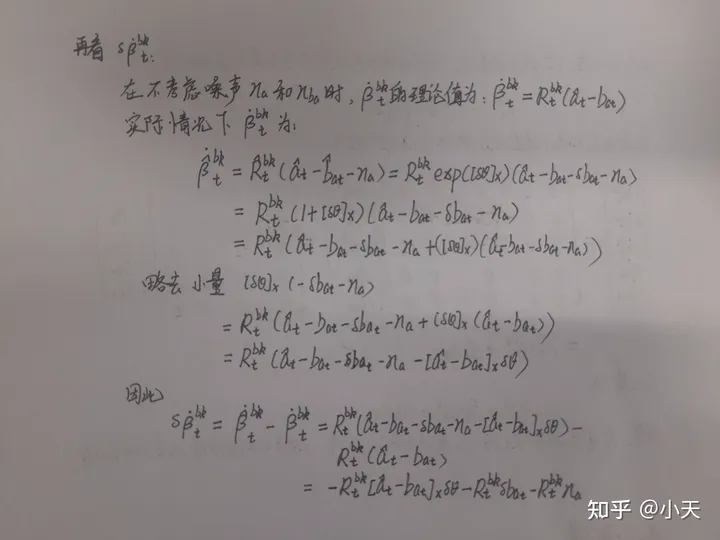 再看 δβ̇ₜᵇᵏ:
在不考虑噪声 nₐ 和 n_ba 时, β̇ₜᵇᵏ的理论值为: β̇ₜᵇᵏ = Rₜᵇᵏ(âₜ-b_at)
实际情况下 β̇ₜᵇᵏ 为:
β̂̇ₜᵇᵏ = R̂ₜᵇᵏ(âₜ-b̂_at-nₐ) = Rₜᵇᵏ exp([δθ]ₓ)(âₜ-b_at-δb_at-nₐ)
= Rₜᵇᵏ (1+[δθ]ₓ)(âₜ-b_at-δb_at-nₐ)
= Rₜᵇᵏ (âₜ-b_at-δb_at-nₐ+([δθ]ₓ)(âₜ-b_at-δb_at-nₐ))
略去小量 [δθ]ₓ(-δb_at-nₐ)
= Rₜᵇᵏ (âₜ-b_at-δb_at-nₐ+[δθ]ₓ(âₜ-b_at))
= Rₜᵇᵏ (âₜ-b_at-δb_at-nₐ-[âₜ-b_at]ₓδθ)
因此
δβ̇ₜᵇᵏ = β̂̇ₜᵇᵏ - β̇ₜᵇᵏ = Rₜᵇᵏ(âₜ-b_at-δb_at-nₐ-[âₜ-b_at]ₓδθ)-
Rₜᵇᵏ(âₜ-b_at)
= -Rₜᵇᵏ[âₜ-b_at]ₓδθ-Rₜᵇᵏδb_at-Rₜᵇᵏnₐ
知乎 @小天